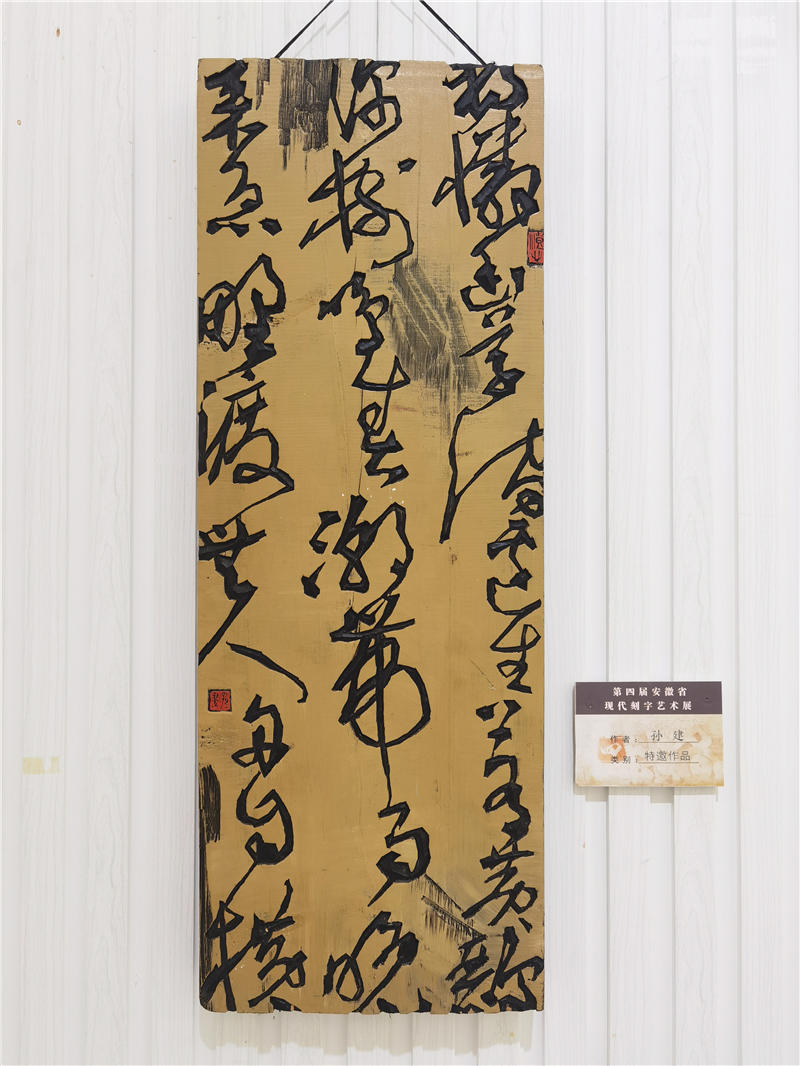 獨憐幽草澗邊生上有黄鸝
深樹鳴春潮帶雨晚
來急野渡無人舟自横
第四届安徽省
现代刻字艺术展
作者：孙建
类别：特邀作品